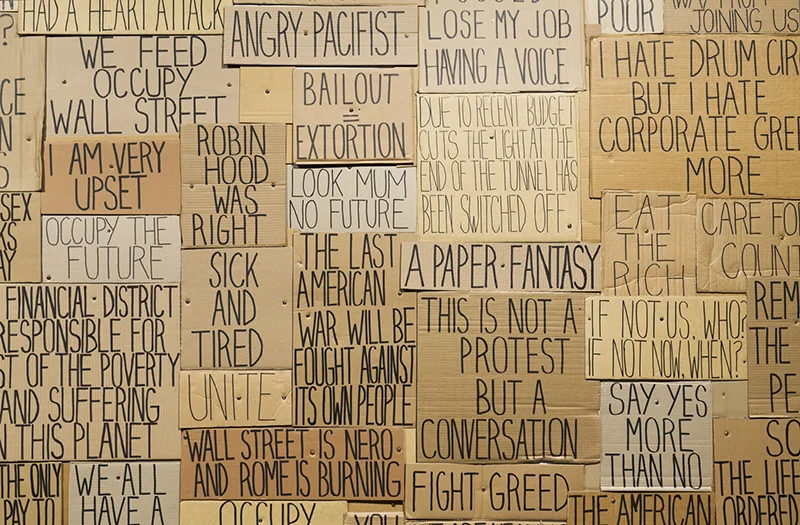 HAD A HEART ATTACK
WE FEED
OCCUPY
WALL STREET
ANGRY PACIFIST
LOSE MY JOB
HAVING A VOICE
POOR
JOINING US
I HATE DRUM CIR
BUT I HATE
CORPORATE GREE
MORE
BAILOUT
=
EXTORTION
DUE TO RECENT BUDGET
CUTS THE LIGHT AT THE
END OF THE TUNNEL HAS
BEEN SWITCHED OFF
I AM VERY
UPSET
ROBIN
HOOD
WAS
RIGHT
LOOK MUM
NO FUTURE
SEX
OCCUPY THE
FUTURE
EAT
THE
RICH
CARE FO
COUNT
SICK
AND
TIRED
THE LAST
AMERICAN
WAR WILL BE
FOUGHT AGAINST
ITS OWN PEOPLE
A PAPER FANTASY
FINANCIAL DISTRICT
RESPONSIBLE FOR
ST OF THE POVERTY
AND SUFFERING
N THIS PLANET
THIS IS NOT A
PROTEST
BUT A
CONVERSATION
IF NOT US, WHO?
IF NOT NOW, WHEN?
REM
THE
PE
UNITE
SAY YES
MORE
THAN NO
WALL STREET IS NERO
AND ROME IS BURNING
SO
THE LIFE
ORDERED
THE ONLY
PAY TO
WE ALL
HAVE A
FIGHT GREED
OCCUPY
YOU
THE AMERICAN